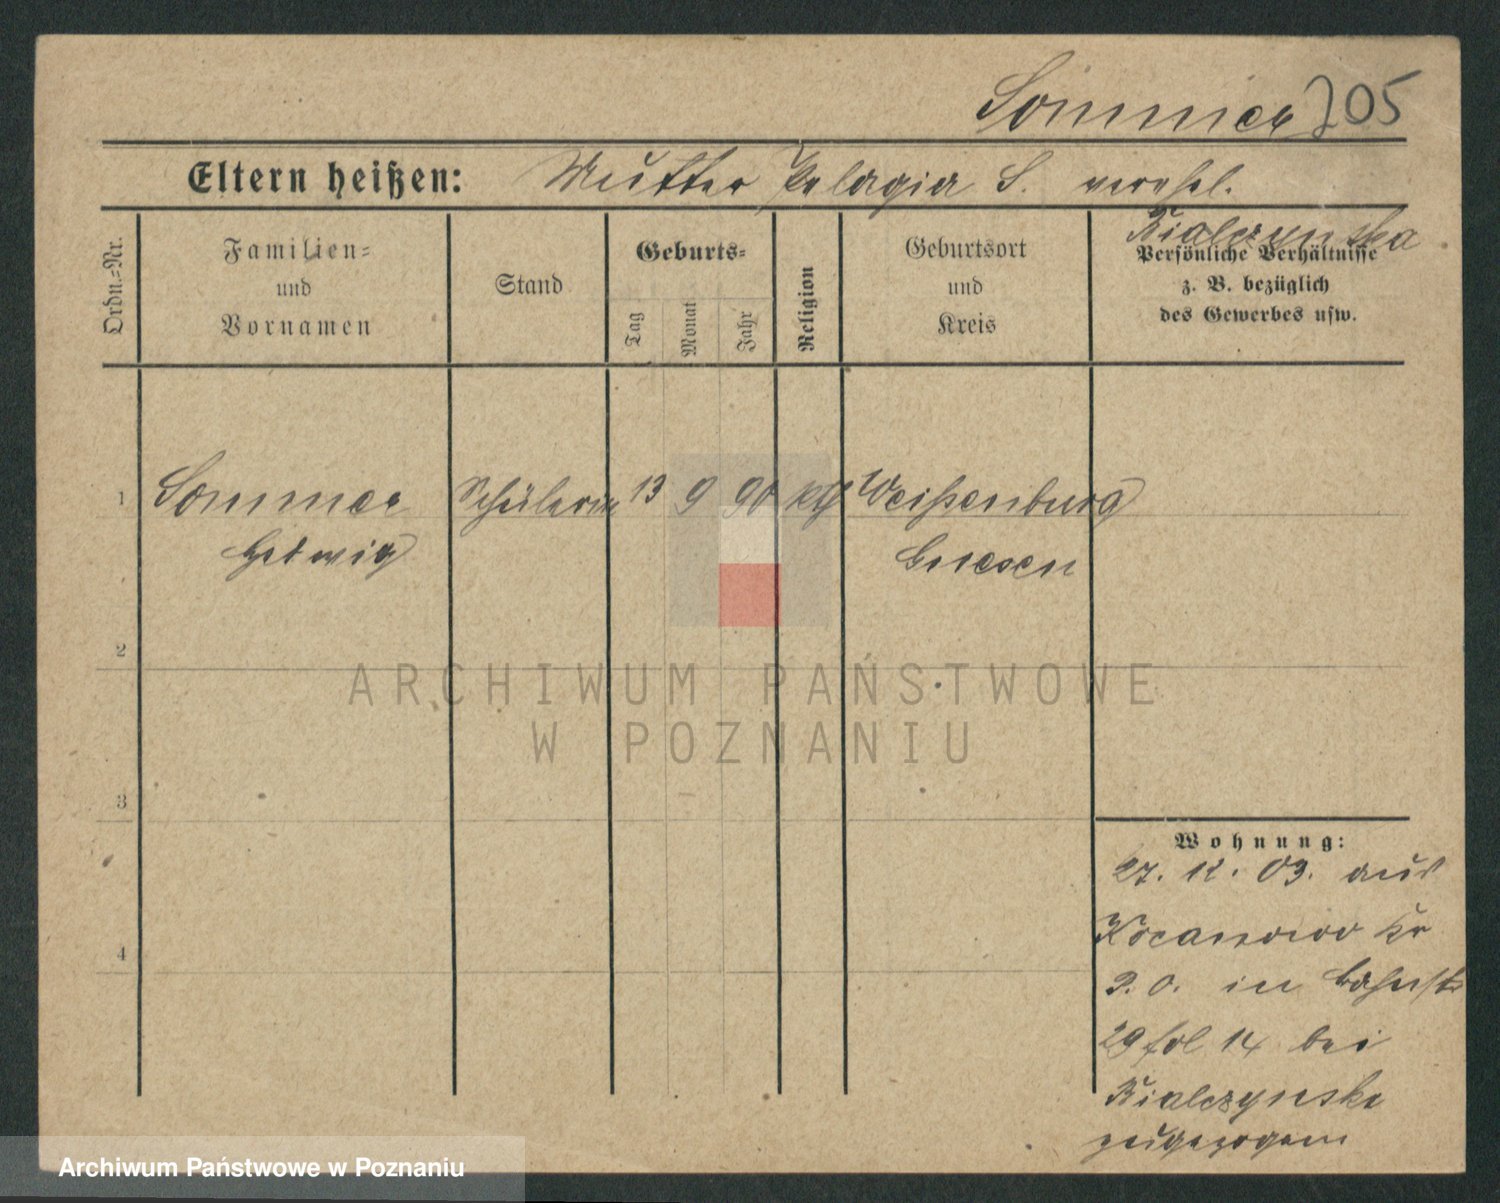 Sommer 705
Eltern heißen: Mutter Pelagia S. verehel.
Bialczynska
Ordn.=Nr.
Familien=
und
Vornamen
Stand
Geburts=
Tag
Monat
Jahr
Religion
Geburtsort
und
Kreis
Persönliche Verhältnisse
z. B. bezüglich
des Gewerbes usw.
1 Sommer Schülerin 13 9 90 kth Weißenburg
Hedwig Gnesen
2
3
4
Wohnung:
27. 12. 03. aus
Kocanowo Kr
P. O. in Bahnstr
29 fol 14 bei
Bialczynski
zugezogen
ARCHIWUM PAŃSTWOWE
W POZNANIU
Archiwum Państwowe w Poznaniu